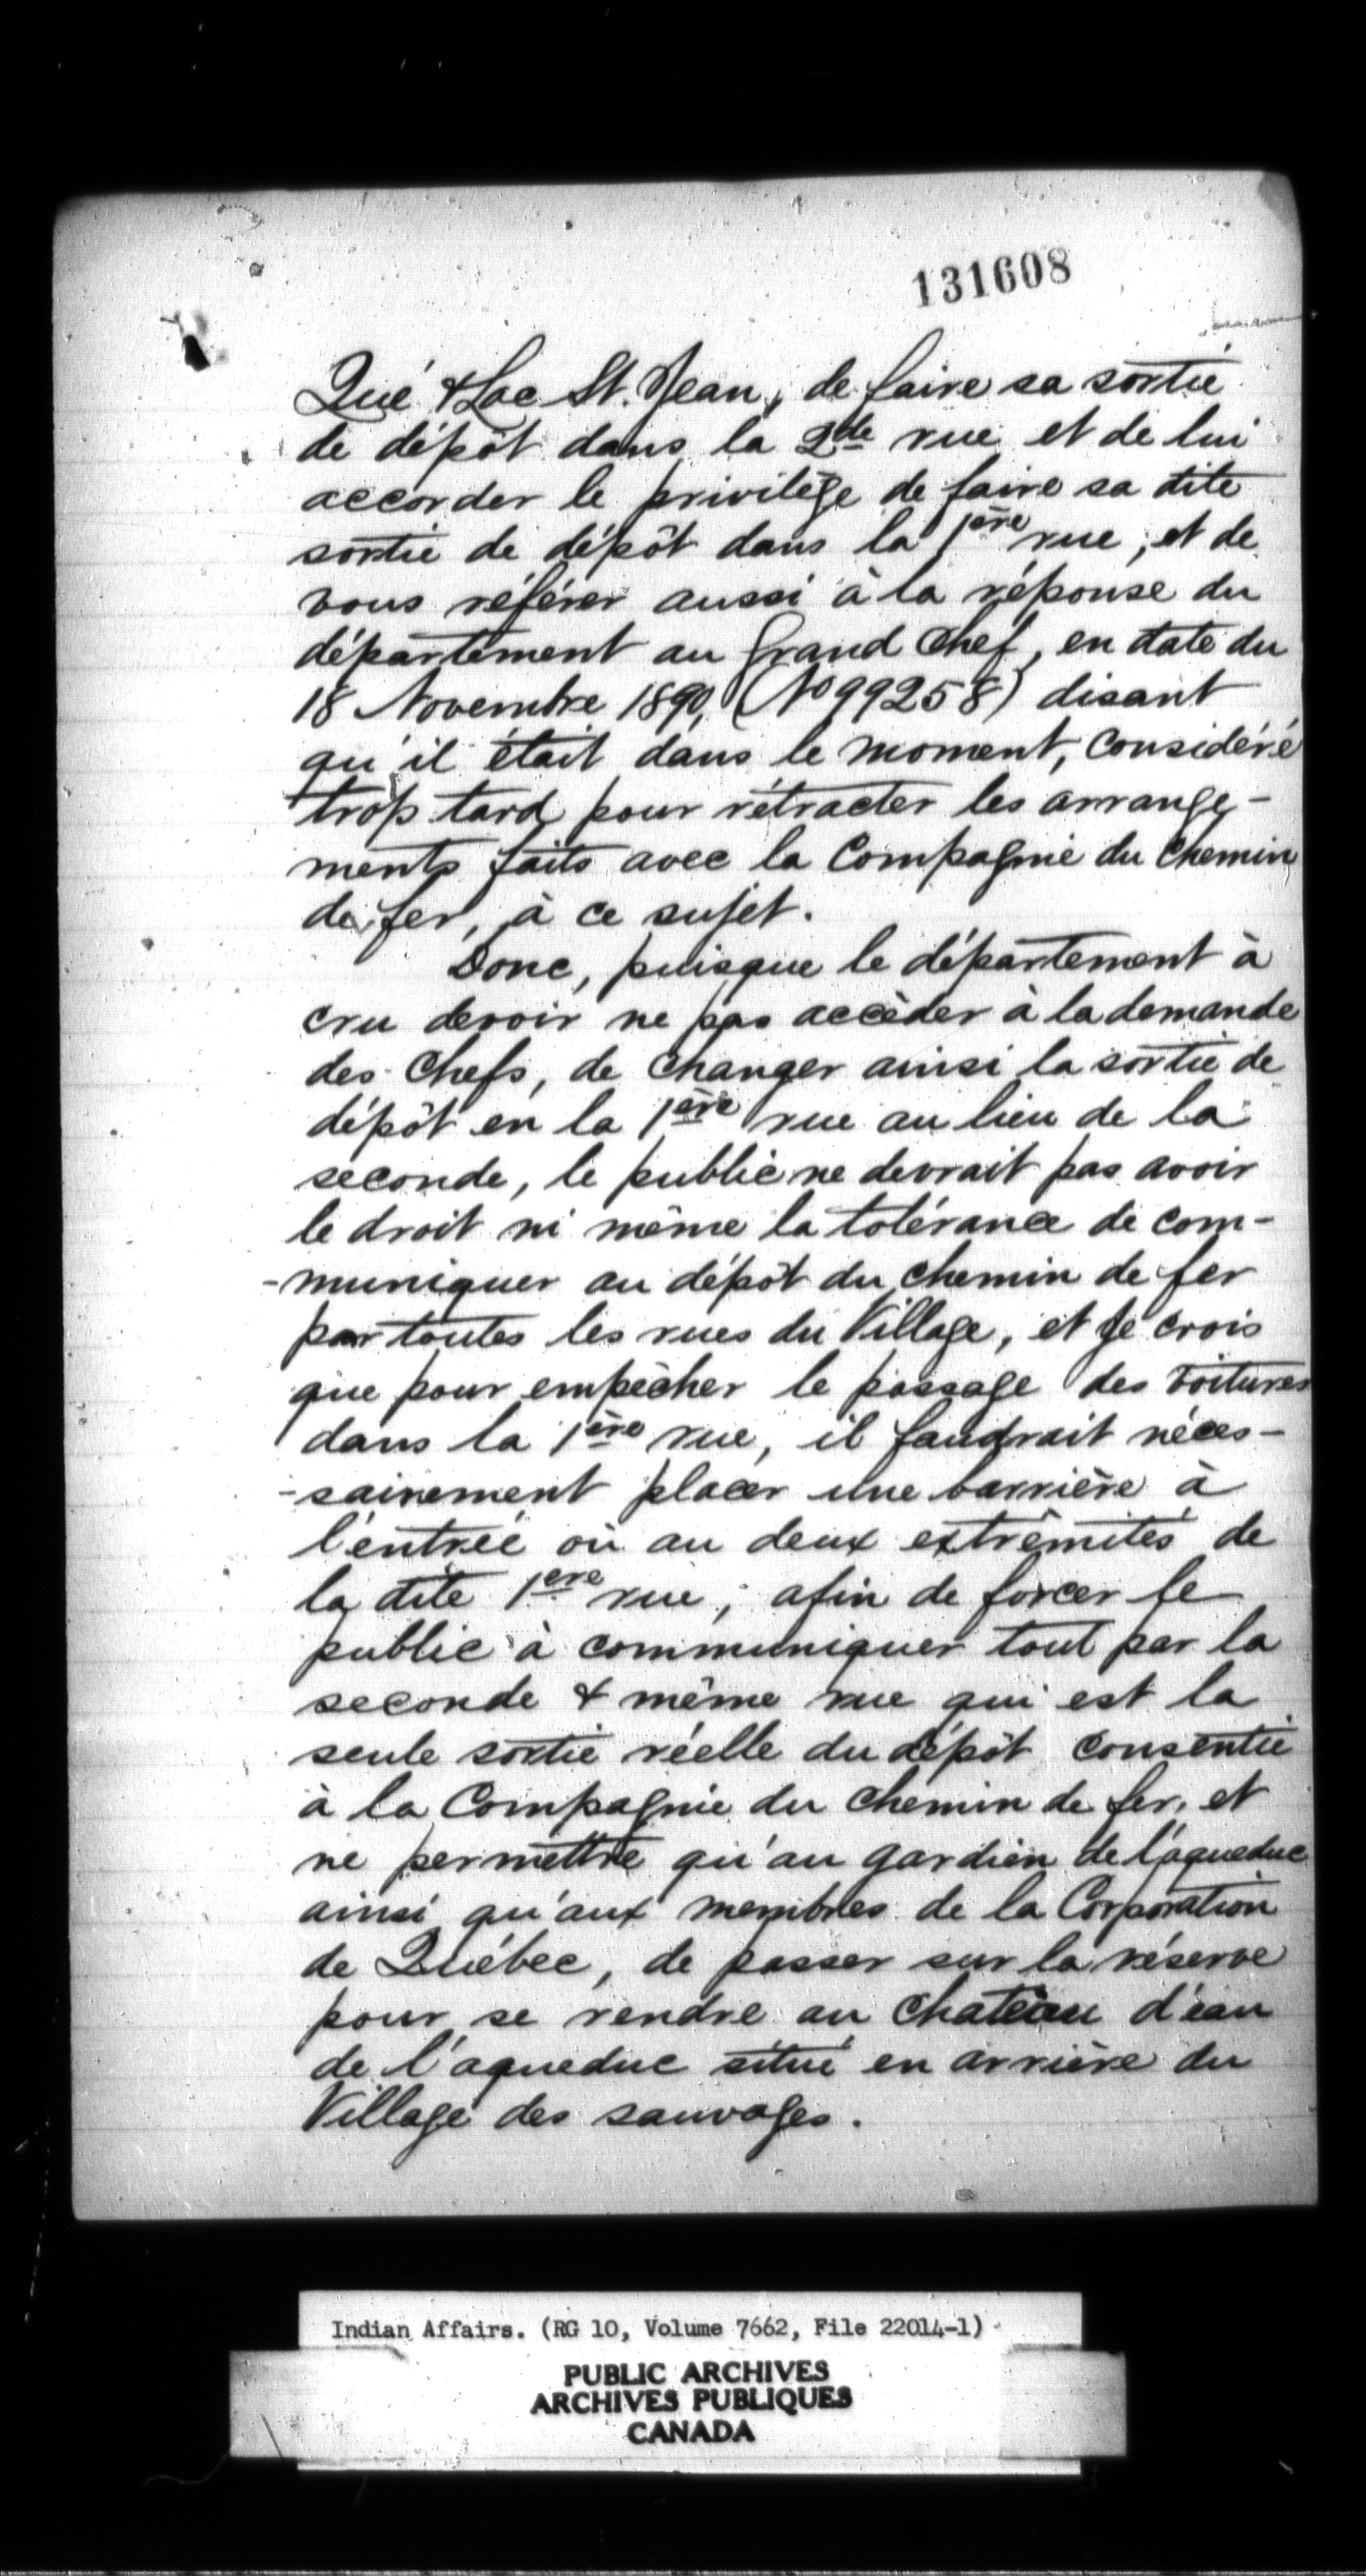 131608
Qué & Lac St. Jean, de faire sa sortie
de dépôt dans la 2de rue et de lui
accorder le privilège de faire sa dite
sortie de dépôt dans la 1ère rue, et de
vous référer aussi à la réponse du
département au Grand Chef, en date du
18 Novembre 1890, (No 99258) disant
qu'il était dans le moment, considéré
trop tard pour rétracter les arrange-
ments faits avec la Compagnie du Chemin
de fer, à ce sujet.
Donc, puisque le département à
cru devoir ne pas accèder à la demande
des Chefs, de changer ainsi la sortie de
dépôt en la 1ère rue au lieu de la
seconde, le public ne devrait pas avoir
le droit ni même la tolérance de com-
-muniquer au dépôt du chemin de fer
par toutes les rues du Village, et je crois
que pour empêcher le passage des voitures
dans la 1ère rue, il faudrait néces-
-sairement placer une barrière à
l'entrée où au deux extrêmités de
la dite 1ere rue, afin de forcer le
public à communiquer tout par la
seconde & même rue qui est la
seule sortie réelle du dépôt consentie
à la Compagnie du chemin de fer, et
ne permettre qu'au gardien de l'aqueduc
ainsi qu'aux membres de la Corporation
de Québec, de passer sur la réserve
pour se rendre au chateau d'eau
de l'aqueduc situé en arrière du
Village des sauvages.
Indian Affairs. (RG 10, Volume 7662, File 22014-1)
PUBLIC ARCHIVES
ARCHIVES PUBLIQUES
CANADA